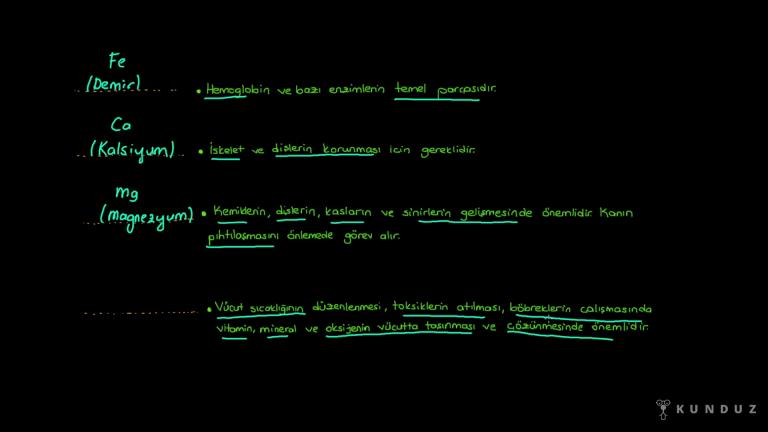 Fe
(Demir)
• Hemoglobin ve bazı enzimlerin temel parçasıdır.
Ca
(Kalsiyum)
• İskelet ve dişlerin korunması için gereklidir.
Mg
(magnezyum)
• Kemiklerin, dişlerin, kasların ve sinirlerin gelişmesinde önemlidir. Kanın
pıhtılaşmasını önlemede görev alır.
• Vücut sıcaklığının düzenlenmesi, toksiklerin atılması, böbreklerin çalışmasında
vitamin, mineral ve oksijenin vücutta taşınması ve çözünmesinde önemlidir.
KUNDUZ